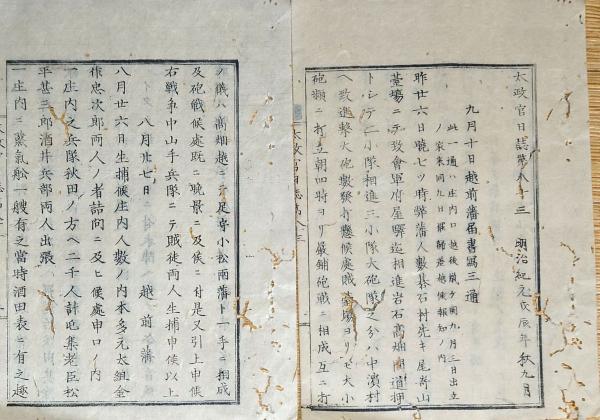 太政官日誌第八十三 明治紀元戊辰年秋九月
九月十日越前藩届書寫三通
此一通ハ庄内口越後鼠ケ関九月三日出立
ノ家来同九日羅歸着越候報知ノ内
昨廿六日曉七ツ時弊藩人數碁石村先キ尾嵜山
臺場ニテ致會軍府屋驛迄相進岩石高畑間道押
トシテ一小隊相進三小隊大砲隊之分ハ中濱村
ヘ致進撃火砲數發打懸候處賊臺場ヨリモ大小
砲頻ニ打立朝四時ヨリ嚴鋪砲戰ニ相成互ニ打
ノ義ハ高畑越ニテ足高小松兩藩ト一手ニ相成
及砲戰候處既ニ晩景ニ及候ニ付是又引上申候
右戰爭中山手兵隊ニテ賊徒兩人生捕申候以上
八月廿七日 越前藩
八月廿六日生捕候庄内人數ノ内本多元太組金
作忠次郎兩人ノ者詰問ニ及ヒ候處申口ノ内
一庄内之兵隊秋田ノ方ヘ二千人計屯集老臣松
平甚三郎酒井兵部兩人出張
一庄内ニ蒸氣舩一艘有之當時酒田表ニ有之趣